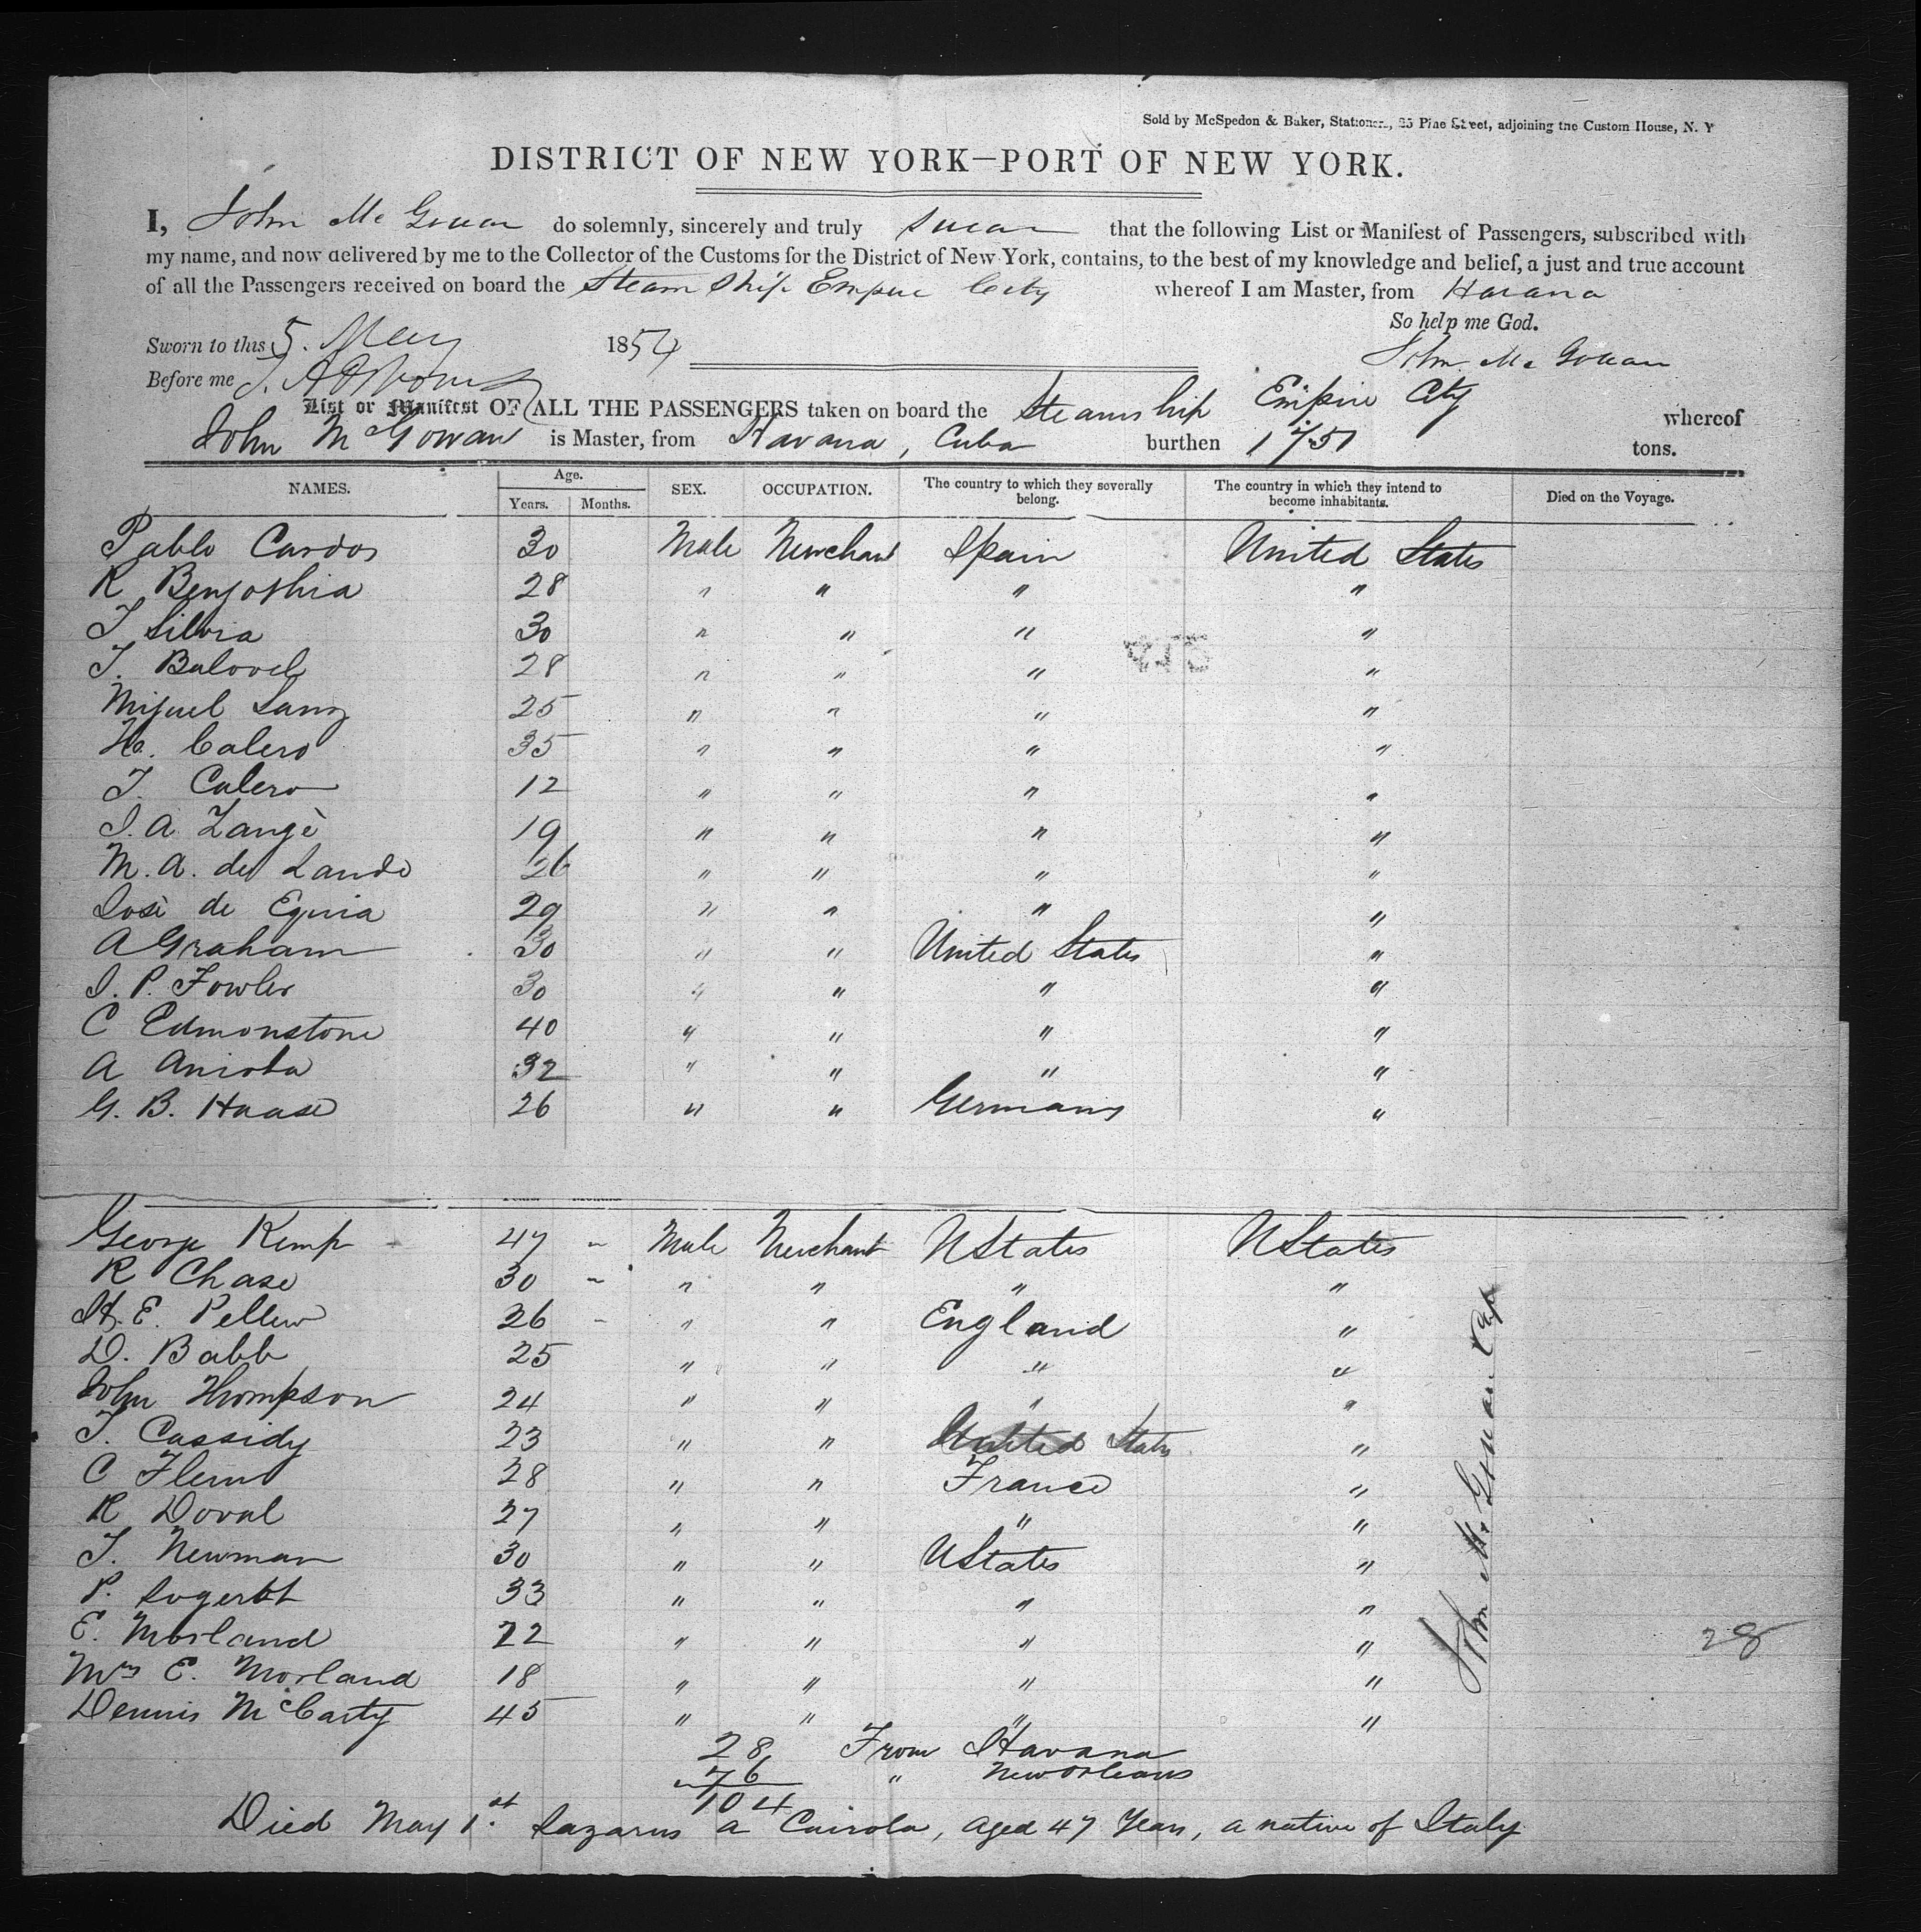 Sold by McSpedon & Baker, Stationers, 25 Pine Street, adjoining the Custom House, N. Y
DISTRICT OF NEW YORK—PORT OF NEW YORK.
I, John McGowan do solemnly, sincerely and truly swear that the following List or Manifest of Passengers, subscribed with
my name, and now delivered by me to the Collector of the Customs for the District of New York, contains, to the best of my knowledge and belief, a just and true account
of all the Passengers received on board the Steam Ship Empire City whereof I am Master, from Havana
So help me God.
Sworn to this 5. May 1854 John McGowan
Before me
List or Manifest OF ALL THE PASSENGERS taken on board the Steamship Empire City whereof
John McGowan is Master, from Havana, Cuba burthen 1751 tons.
NAMES. Age. Years. Months. SEX. OCCUPATION. The country to which they severally belong. The country in which they intend to become inhabitants. Died on the Voyage.
Pablo Cardos 30 Male Merchant Spain United States
R Benjoshia 28 " " " "
J Silvia 30 " " " "
J. Balovel 28 " " " "
Miguel Sanz 25 " " " "
Ho. Calero 35 " " " "
J. Calero 12 " " " "
J. A Zangè 19 " " " "
M. A. de Lando 26 " " " "
Josè de Eguia 29 " " " "
A Graham 30 " " United States "
J. P. Fowler 30 " " " "
C Edmonstone 40 " " " "
A Aniota 32 " " " "
G. B. Haase 26 " " Germany "
George Kemp 47 " Male Merchant UStates UStates
R Chase 30 " " " " "
H. E. Pellew 26 " " England "
D. Babb 25 " " " "
John Thompson 24 " " " "
J. Cassidy 23 " " United States "
C Fleur 28 " " France "
R Doval 27 " " " "
J. Newman 30 " " UStates "
P. 33 " " " "
E. Morland 22 " " " "
Mrs E. Morland 18 " " " "
Dennis McCarty 45 " " " "
John McGowan Cap
28
28 From Havana
76 " New Orleans
104
Died May 1st. Lazarus a Cairola, aged 47 Years, a native of Italy